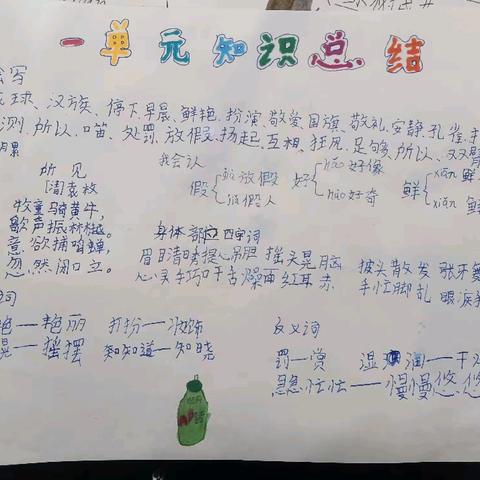 一单元知识总结
写
球、汉族、停下、早晨、鲜艳、扮演、敬爱、国旗、敬礼、安静、孔雀、
测、所以、口笛、处罚、放假、扬起、互相、狂风、足够、所以、双臂
积累
我会认
所见
[清]袁枚
牧童骑黄牛,
歌声振林樾。
意欲捕鸣蝉,
忽然闭口立。
假 放假
假人
好 hǎo 好像
hào 好奇
鲜 xiān 鲜
xiǎn 鲜
身体部位四字词
眉目清晰提心吊胆 摇头晃脑 披头散发
心灵手巧口干舌燥面红耳赤 手忙脚乱 眼泪
词
艳——艳丽 打扮——
晃——摇摆 知道——知晓
反义词
罚——赏 湿润——干
急忙忙——慢慢悠悠